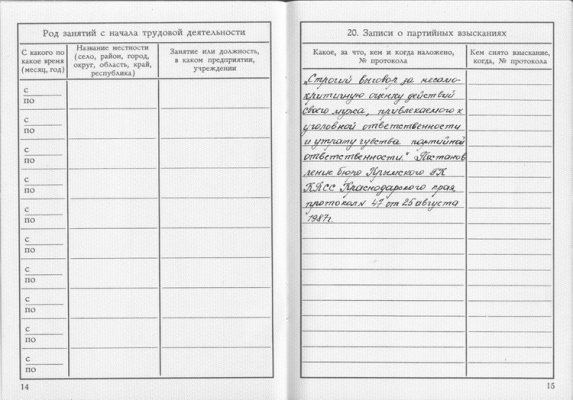 Род занятий с начала трудовой деятельности
С какого по какое время (месяц, год)
Название местности (село, район, город, округ, область, край, республика)
Занятие или должность, в каком предприятии, учреждении
с
по
с
по
с
по
с
по
с
по
с
по
с
по
с
по
с
по
с
по
14
20. Записи о партийных взысканиях
Какое, за что, кем и когда наложено, № протокола
Кем снято взыскание, когда, № протокола
„Строгий выговор за несамо-
критичную оценку действий
своего мужа, привлекаемого к
уголовной ответственности
и утрату чувства партийной
ответственности." Постанов
ление бюро Крымского РК
КПСС Краснодарского края
протокол № 47 от 25 августа
1987г.
15